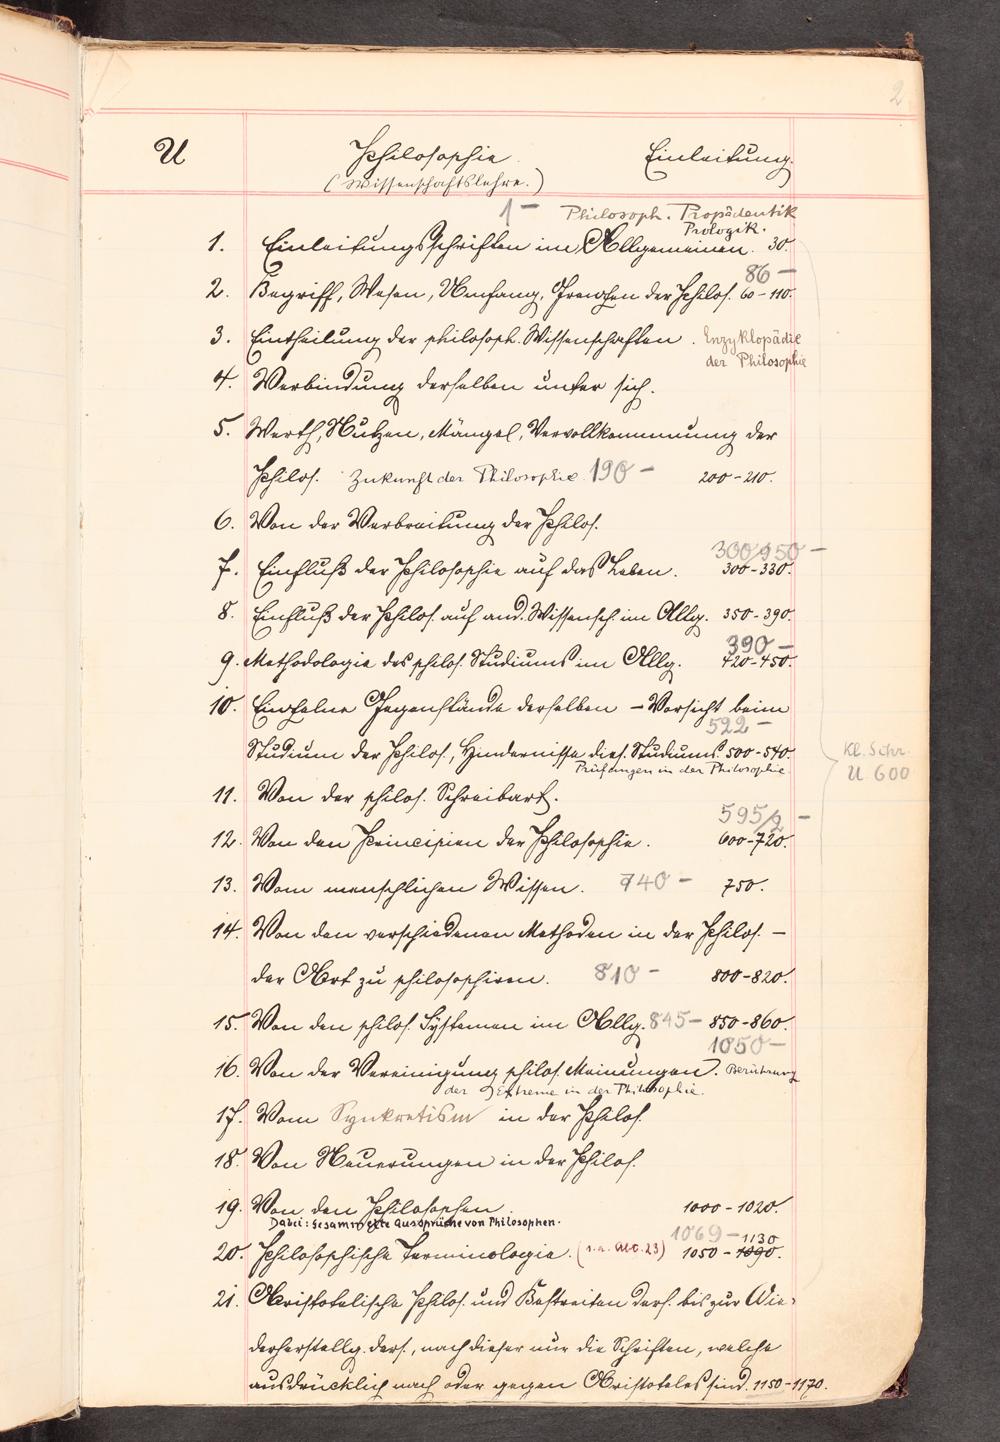 2
U Philosophie Einleitung.
(Wissenschaftslehre.)
1 – Philosoph. Propädeutik
Prologik.
1. Einleitungsschriften im Allgemeinen. 30.
86 –
2. Begriff, Wesen, Umfang, Grenzen der Philos. 60-110.
3. Eintheilung der philosoph. Wissenschaften. Enzyklopädie
der Philosophie
4. Verbindung derselben unter sich.
5. Werth, Nutzen, Mängel, Vervollkommnung der
Philos. Zukunft der Philosophie 190 – 200-210.
6. Von der Verbreitung der Philos.
300/350 –
7. Einfluß der Philosophie auf das Leben. 300-330.
8. Einfluß der Philos. auf and. Wissensch. im Allg. 350-390.
390 –
9. Methodologie des philos. Studiums im Allg. 420-450.
10. Einzelne Gegenstände derselben – Vorsicht beim
522 –
Studium der Philos., Hindernisse dies. Studiums. 500-540.
Prüfungen in der Philosophie.
Kl. Schr.
U 600
11. Von der philos. Schreibart.
595/2 –
12. Von den Principien der Philosophie. 600-720.
13. Vom menschlichen Wissen. 740 – 750.
14. Von den verschiedenen Methoden in der Philos. –
der Art zu philosophiren. 810 – 800-820.
15. Von den philos. Systemen im Allg. 845 – 850-860.
1050 –
16. Von der Vereinigung philos. Meinungen. Berührung
der Extreme in der Philosophie.
17. Vom Synkretism in der Philos.
18. Von Neuerungen in der Philos.
19. Von den Philosophen. 1000-1020.
Dabei: Gesammelte Aussprüche von Philosophen.
1069 – 1130
20. Philosophische Terminologie. (s. a. Abt. 23) 1050-1090.
21. Aristotelische Philos. und Bestreiten ders. bis zur Wie-
derherstellg. ders., nach dieser nur die Schriften, welche
ausdrücklich nach oder gegen Aristoteles sind. 1150-1170.